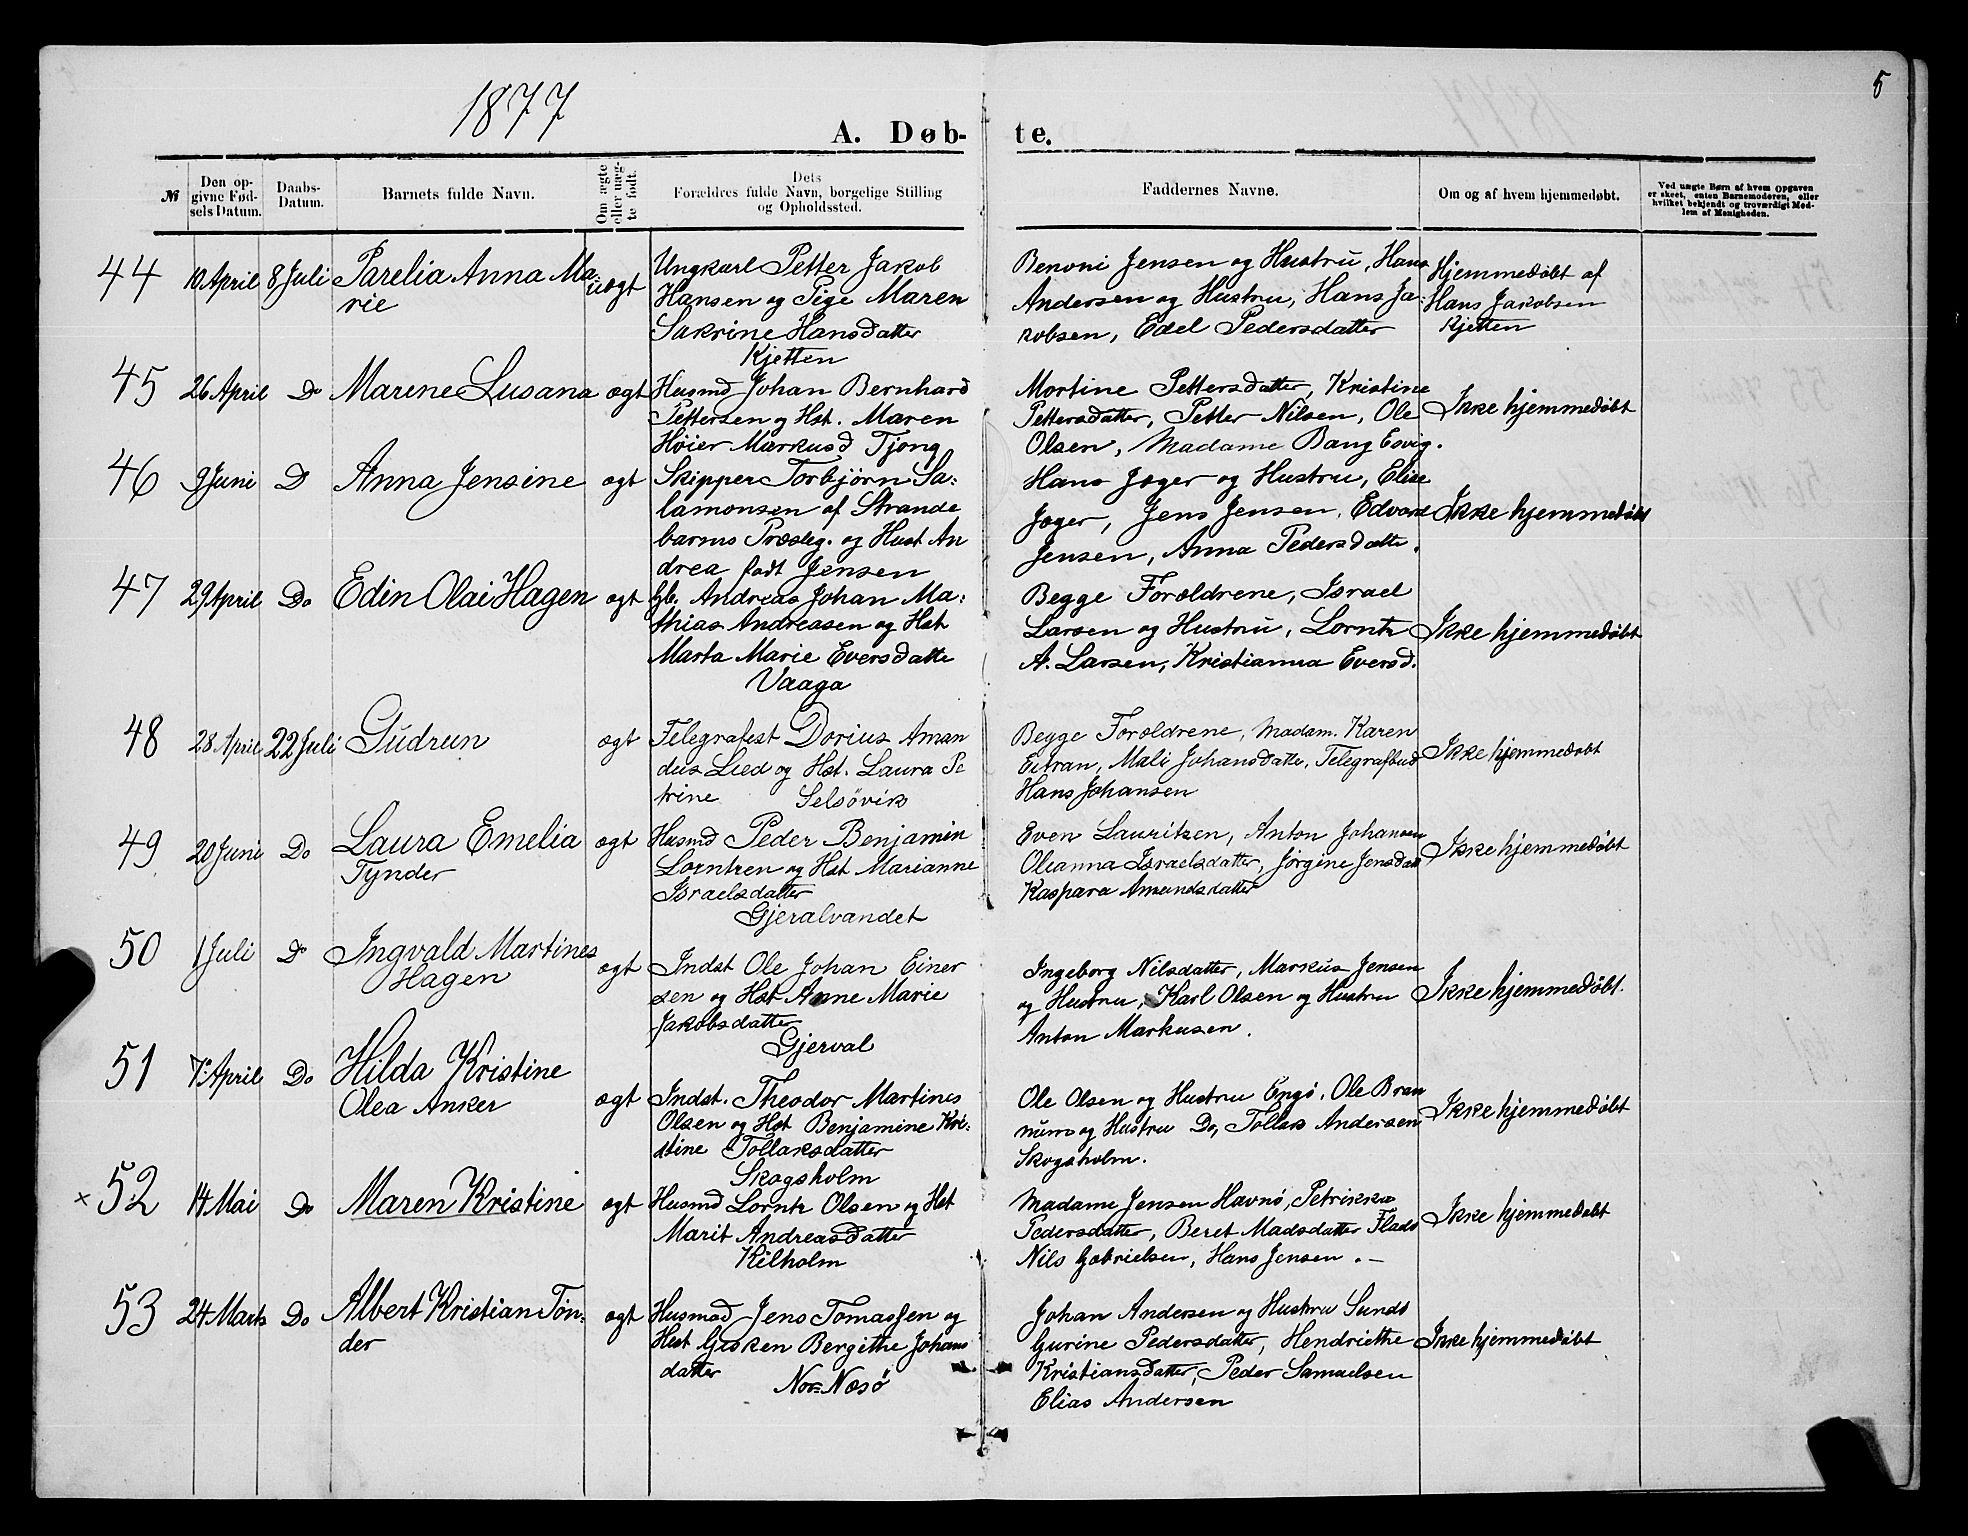 1877
5
A. Døb- te.
№
Den opgivne Fødsels Datum.
Daabs-Datum.
Barnets fulde Navn.
Om ægte eller uægte født.
Dets Forældres fulde Navn, borgelige Stilling og Opholdssted.
Faddernes Navne.
Om og af hvem hjemmedøbt.
Ved uægte Børn af hvem Opgaven er skeet, enten Barnemoderen, eller hvilket bekjendt og troværdigt Medlem af Menigheden.
44 10 April 8 Juli Parelia Anna Ma-
rie
uægt
Ungkarl Petter Jakob
Hansen og Pige Maren
Sakrine Hansdatter
Kjetten
Benoni Jensen og Hustru, Hans
Andersen og Hustru, Hans Ja-
kobsen, Edel Pedersdatter
Hjemmedøbt af
Hans Jakobsen
Kjetten
45 26 April Do Marene Lusana ægt
Husmd Johan Bernhard
Pettersen og Hst. Maren
Høier Markusd Tjong
Mortine Pettersdatter, Kristine
Pettersdatter, Petter Nilsen, Ole
Olsen, Madame Bang Esvig.
Ikke hjemmedøbt
46 9 Juni D Anna Jensine ægt
Skipper Torbjørn Sa-
lamonsen af Strande
barms Præsteg. og Hust An
drea født Jensen
Hans Jæger og Hustru, Elise
Jæger, Jens Jensen, Edvard
Jensen, Anna Pedersdatte.
Ikke hjemmedøbt
47 29 April Do Edin Olai Hagen ægt
Gb. Andreas Johan Ma-
thias Andreasen og Hst
Marta Marie Eversdatte
Vaaga
Begge Forældrene, Israel
Larsen og Hustru, Lorntz
A. Larsen, Kristianna Eversd.
Ikke hjemmedøbt
48 28 April 22 Juli Gudrun ægt
Telegrafest Dorius Aman
dus Lied og Hst. Laura Pe
trine Selsøvik
Begge Forældrene, Madam. Karen
Eitran, Mali Johansdatte, Telegrafbud
Hans Johansen
Ikke hjemmedøbt
49 20 Juni Do Laura Emelia
Tynder
ægt
Husmd Peder Benjamin
Lorntzen og Hst Marianne
Israelsdatter
Gjeralvandet
Even Lauritsen, Anton Johansen
Oleanna Israelsdatter, Jørgine Jensdatt
Kaspara Amundsdatter
Ikke hjemmedøbt
50 1 Juli Do Ingvald Martines
Hagen
ægt
Indst Ole Johan Einer
sen og Hst Anne Marie
Jakobsdatter
Gjerval
Ingeborg Nilsdatter, Markus Jensen
og Hustru, Karl Olsen og Hustru
Anton Markusen.
Ikke hjemmedøbt.
51 7 April Do Hilda Kristine
Olea Anker
ægt
Indst. Theodor Martines
Olsen og Hst Benjamine Kri-
stine Tollaksdatter
Skogsholm
Ole Olsen og Hustru Engø, Ole Bran
num og Hustru Do, Tollak Andersen
Skogsholm.
Ikke hjemmedøbt
× 52 14 Mai Do Maren Kristine ægt
Husmd Lorntz Olsen og Hst
Marit Andreasdatter
Kilholm
Madame Jensen Havnø, Petrikka
Pedersdatter, Beret Madsdatter Flads
Nils Gabrielsen, Hans Jensen . —
Ikke hjemmedøbt
53 24 Marts Do Albert Kristian Tøn-
der
ægt
Husmad Jens Tomassen og
Hst Gisken Bergithe Johans
datter
Nor-Næsø
Johan Andersen og Hustru Sundø
Gurine Pedersdatter, Hendriethe
Kristiansdatter, Peder Samuelsen
Elias Andersen
Ikke hjemmedøbt